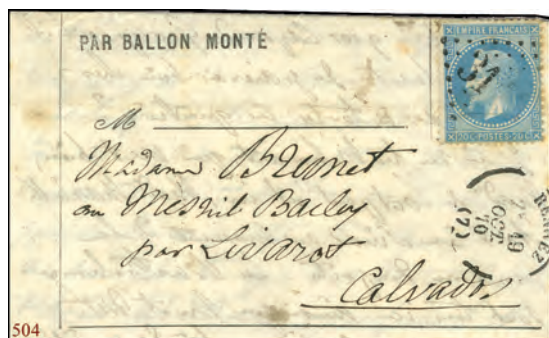 PAR BALLON MONTÉ
EMPIRE FRANÇAIS
31
20 C POSTES 20 C
M
Madame Brunet
au Mesnil Bacley
par Livarot
Calvados
2E 19
OCT
70
(7)
504